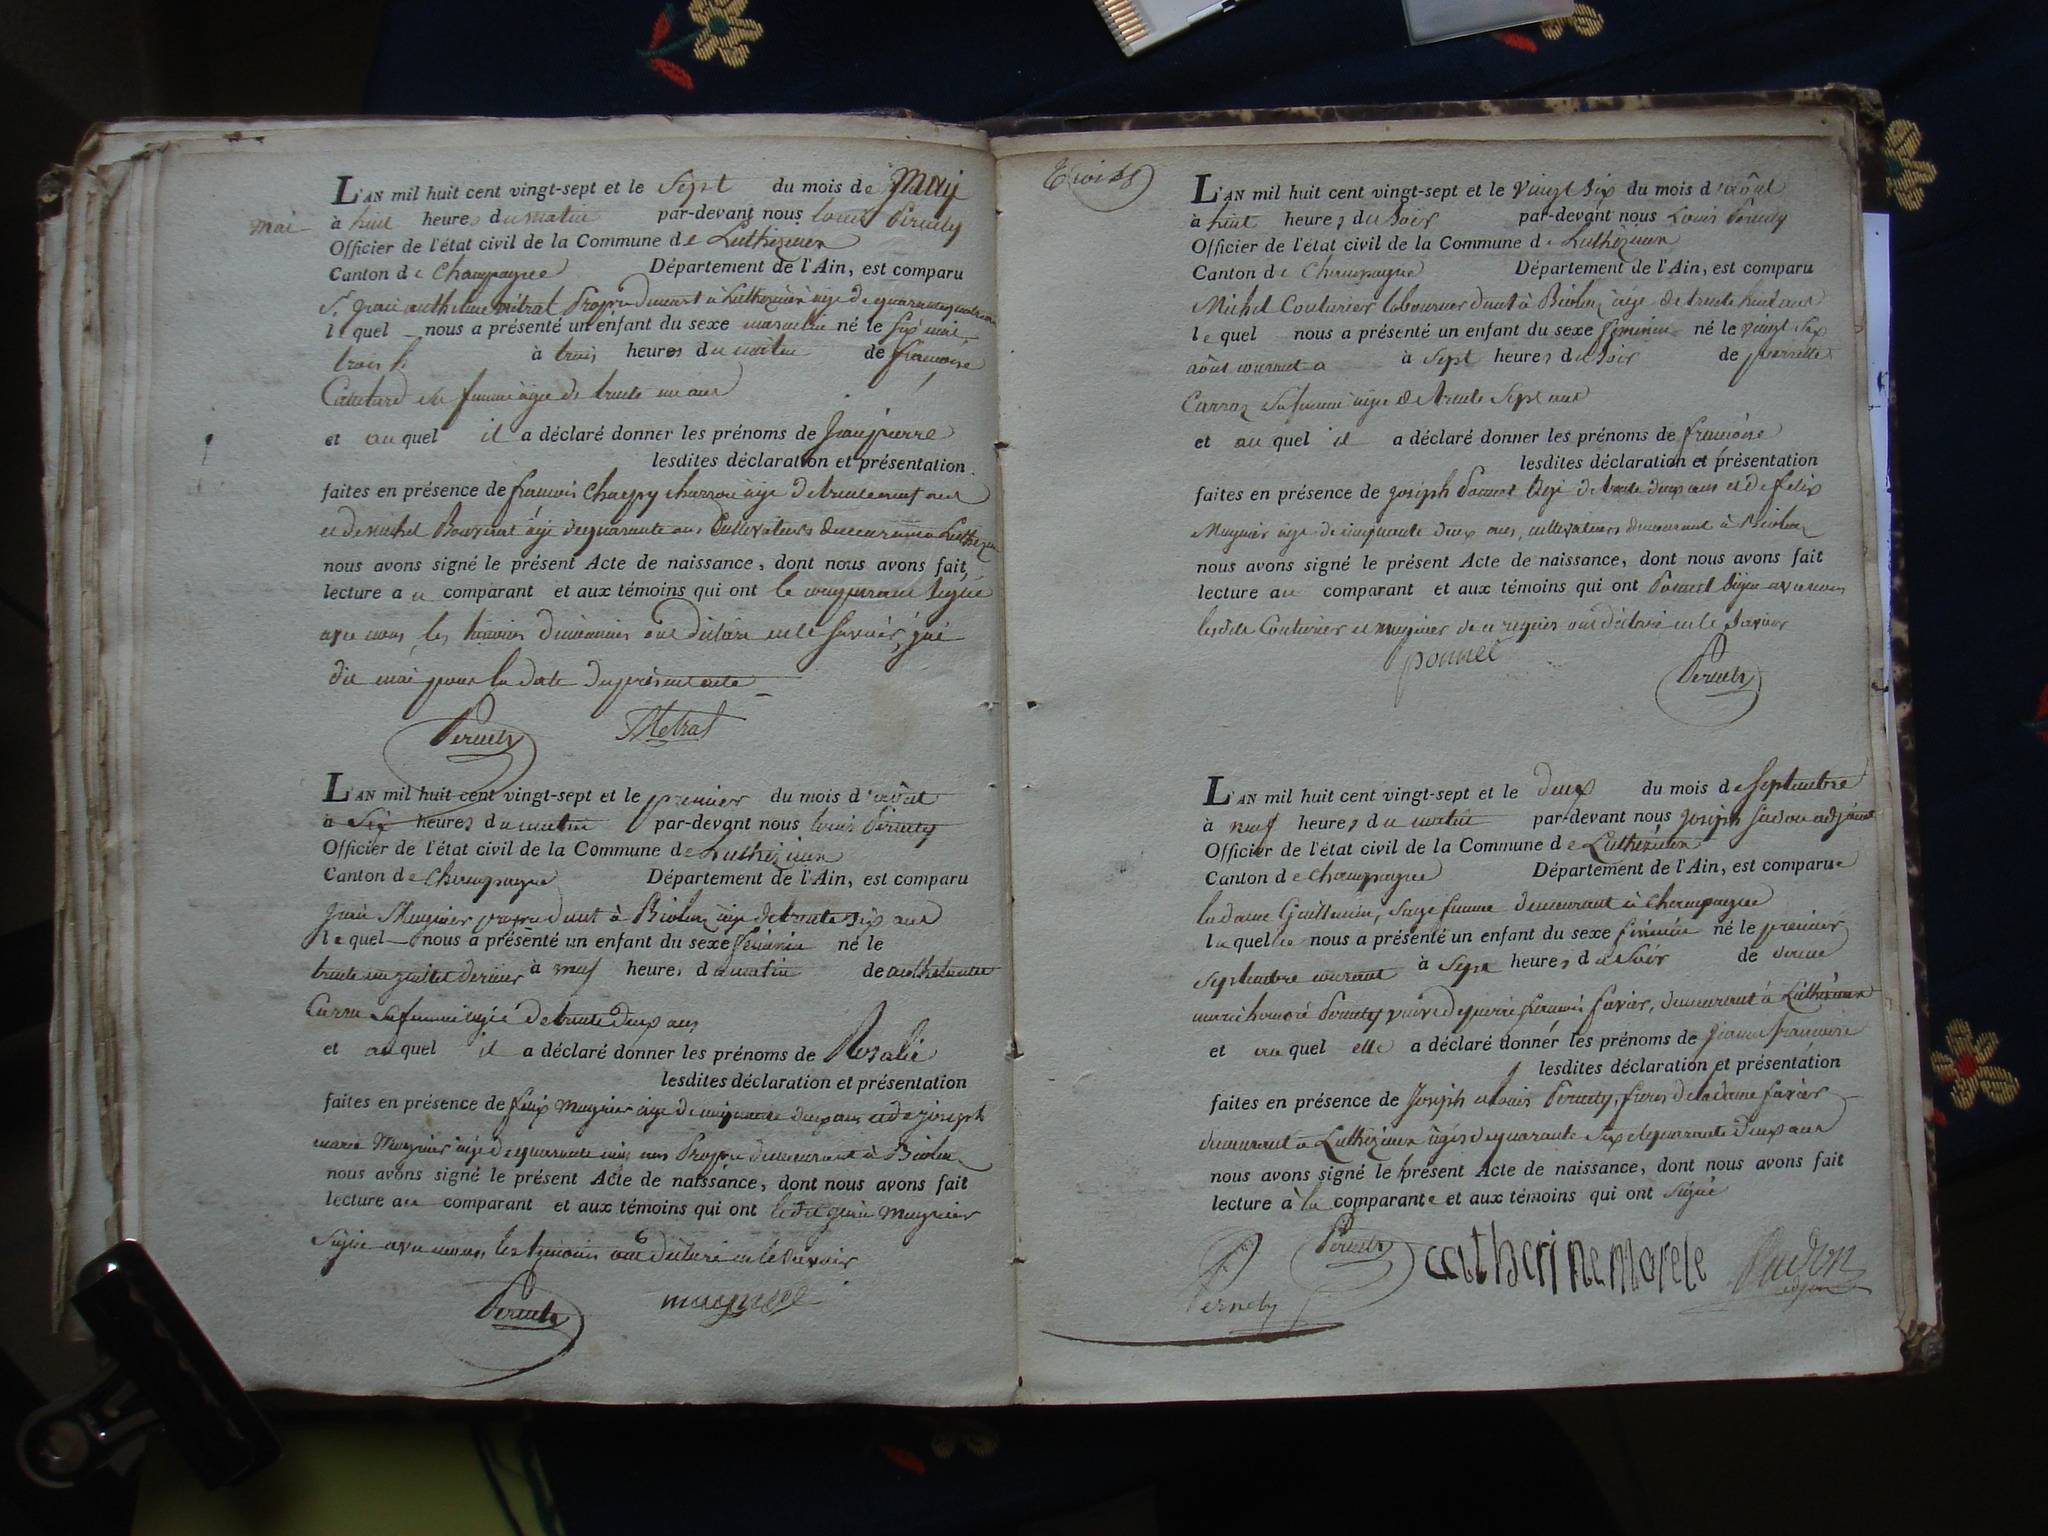 L'AN mil huit cent vingt-sept et le sept du mois de May
mai
à huit heures du matin par-devant nous louis Pernety
Officier de l'état civil de la Commune de Luthezieu
Canton de Champagne Département de l'Ain, est comparu
Sr jean anthelme métrat Propre demeurt à Luthezieu âgé de quarante quatre ans
lequel nous a présenté un enfant du sexe masculin né le six mai
trois h. à trois heures du matin de françoise
sa femme âgée de trente un ans
et auquel il a déclaré donner les prénoms de jean pierre
lesdites déclaration et présentation
faites en présence de françois Charpy charron âgé de trente neuf ans
et de michel âgé de quarante ans Cultivateurs demeurant à Luthezieu
nous avons signé le présent Acte de naissance, dont nous avons fait
lecture au comparant et aux témoins qui ont le comparant signé
avec nous, les témoins ont déclaré ne le savoir,
dit mai pour la date du présent acte
Pernety Metrat
L'AN mil huit cent vingt-sept et le premier du mois d'août
à six heures du matin par-devant nous louis Pernety
Officier de l'état civil de la Commune de Luthezieu
Canton de Champagne Département de l'Ain, est comparu
jean Mugnier propre dmt à Biolaz âgé de trente six ans
lequel nous a présenté un enfant du sexe féminin né le
trente un juillet dernier à neuf heures du matin de anthelmette
Carra sa femme âgée de trente deux ans
et auquel il a déclaré donner les prénoms de Rosalie
lesdites déclaration et présentation
faites en présence de felix mugnier âgé de cinquante deux ans et de joseph
marie Mugnier âgé de quarante ans Propre demeurant à Biolaz
nous avons signé le présent Acte de naissance, dont nous avons fait
lecture au comparant et aux témoins qui ont ledit jean mugnier
signé avec nous, les témoins ont déclaré ne le savoir
Pernety mugnier
L'AN mil huit cent vingt-sept et le vingt six du mois d'août
à huit heures du soir par-devant nous Louis Pernety
Officier de l'état civil de la Commune de Luthezieu
Canton de Champagne Département de l'Ain, est comparu
Michel Couturier laboureur dmt à Biolaz âgé de trente huit ans
lequel nous a présenté un enfant du sexe féminin né le vingt six
août courant à sept heures du soir de pierrette
Carraz sa femme âgée de trente sept ans
et auquel il a déclaré donner les prénoms de françoise
lesdites déclaration et présentation
faites en présence de joseph Ponnet âgé de trente deux ans et de felix
Mugnier âgé de cinquante deux ans, cultivateurs demeurant à Biolaz
nous avons signé le présent Acte de naissance, dont nous avons fait
lecture au comparant et aux témoins qui ont Ponnet signé avec nous
lesdits Couturier et mugnier de ce requis ont déclaré ne le savoir
ponnet
Pernety
L'AN mil huit cent vingt-sept et le deux du mois de septembre
à neuf heures du matin par-devant nous joseph adjoint
Officier de l'état civil de la Commune de Luthezieu
Canton de Champagne Département de l'Ain, est comparue
la dame Guillemin, sage femme demeurant à Champagne
laquelle nous a présenté un enfant du sexe féminin né le premier
septembre courant à sept heures du soir de dame
marie honoré Pernety veuve de pierre françois favier, demeurant à Luthezieu
et auquel elle a déclaré donner les prénoms de jeanne françoise
lesdites déclaration et présentation
faites en présence de Joseph et louis Pernety, frères de la dame favier
demeurant à Luthezieu âgés de quarante six et quarante deux ans
nous avons signé le présent Acte de naissance, dont nous avons fait
lecture à la comparante et aux témoins qui ont signé
Pernety catherine morele
Pernety